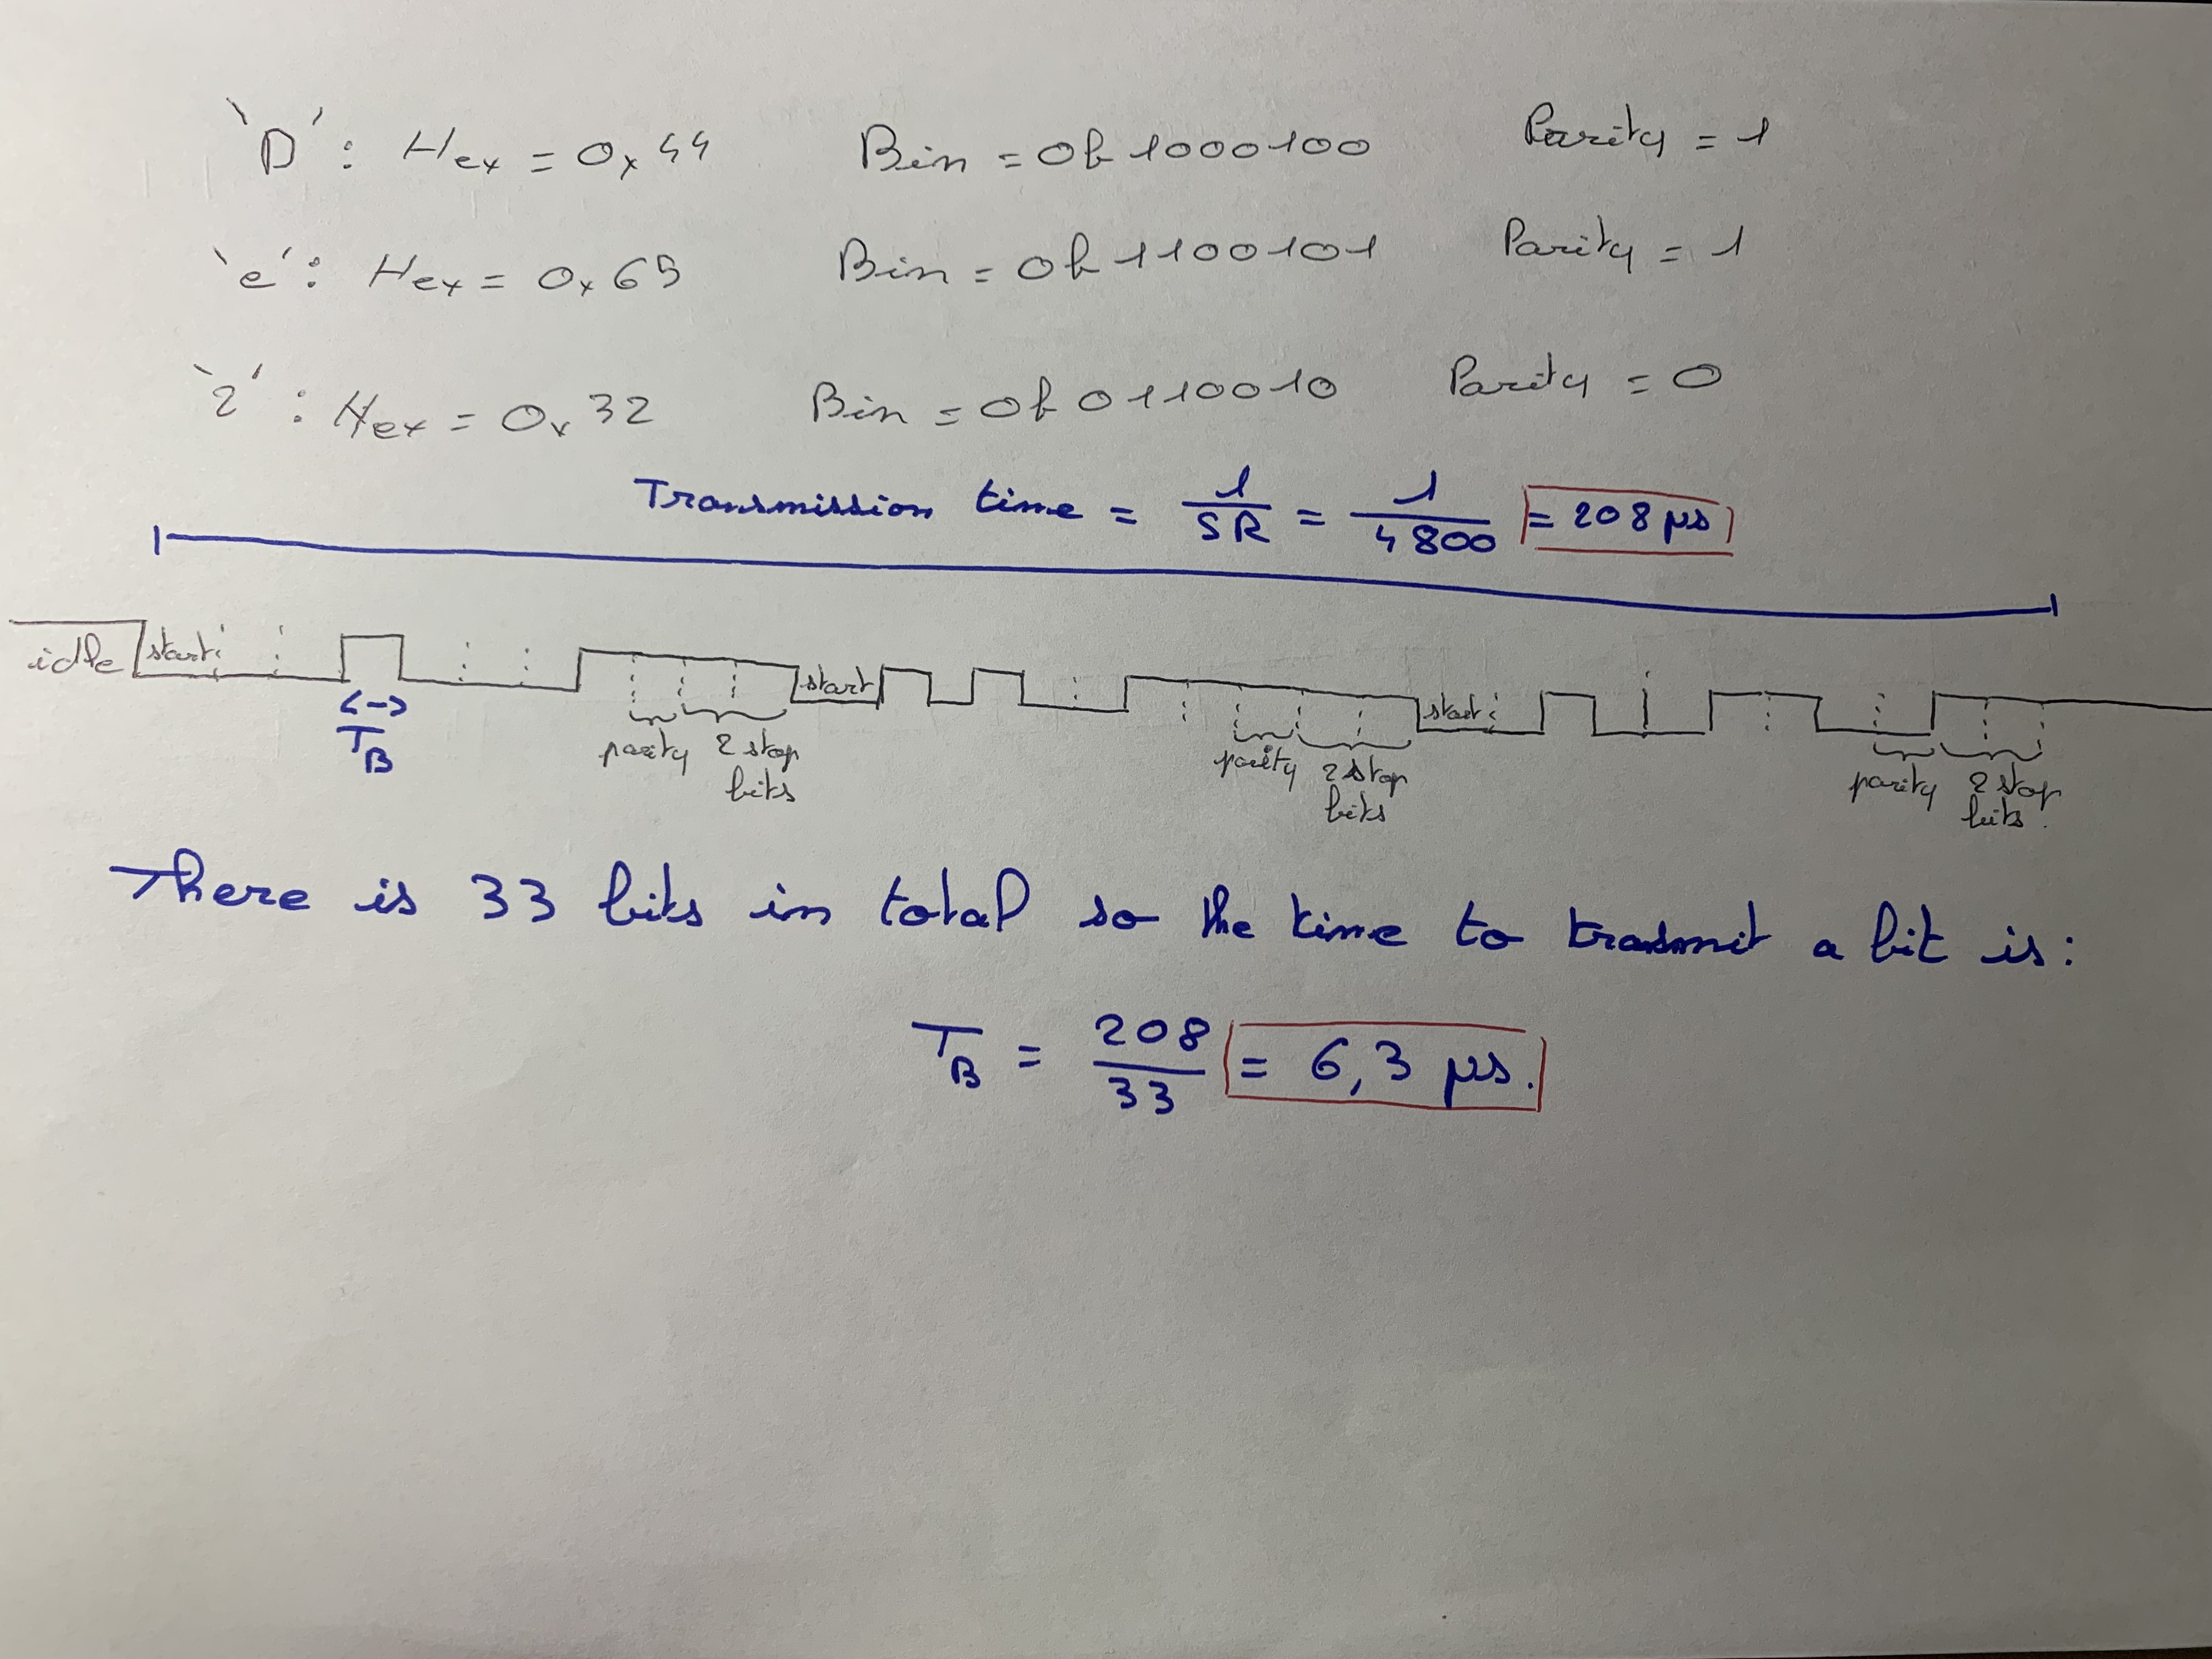 'D' : Hex = 0x44 Bin = 0b 1000100 Parity = 1
'e' : Hex = 0x65 Bin = 0b 1100101 Parity = 1
'2' : Hex = 0x32 Bin = 0b 0110010 Parity = 0
Transmission time = 1/SR = 1/4800 = 208 µs
idle start start start
<-> T_B
parity 2 stop bits parity 2 stop bits parity 2 stop bits.
There is 33 bits in total so the time to transmit a bit is :
T_B = 208/33 = 6,3 µs.